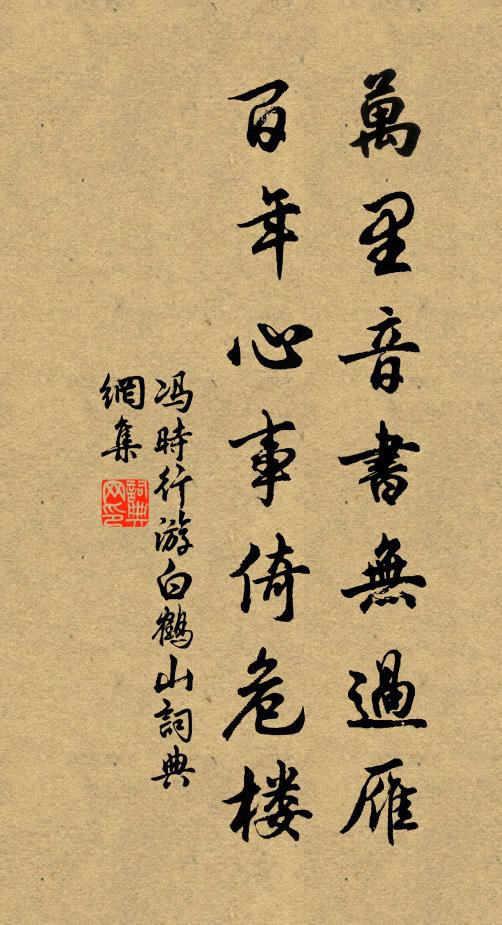 萬里音書無過雁
百年心事倚危楼
冯時行游白鶴山詞典
網集
詞典網印